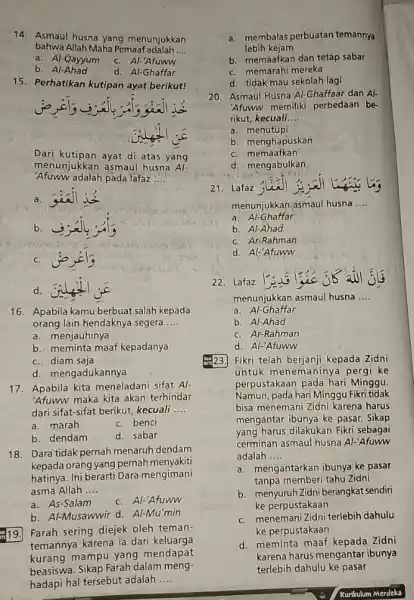 14. Asmaul husna yang menunjukkan
bahwa Allah Maha Pemaaf adalah ....
a. Al-Qayyum c. Al-'Afuww
b. Al-Ahad d. Al-Ghaffar
15. Perhatikan kutipan ayat berikut!
خُذِ الْعَفْوَ وَأْمُرْ بِالْعُرْفِ وَأَعْرِضْ
عَنِ الْجٰهِلِيْنَ
Dari kutipan ayat di atas yang
menunjukkan asmaul husna Al-
'Afuww adalah pada lafaz ....
a. خُذِ الْعَفْوَ
b. وَأْمُرْ بِالْعُرْفِ
c. وَأَعْرِضْ
d. عَنِ الْجٰهِلِيْنَ
16. Apabila kamu berbuat salah kepada
orang lain hendaknya segera ....
a. menjauhinya
b. meminta maaf kepadanya
c. diam saja
d. mengadukannya
17. Apabila kita meneladani sifat Al-
'Afuww maka kita akan terhindar
dari sifat-sifat berikut, kecuali ....
a. marah c. benci
b. dendam d. sabar
18. Dara tidak pernah menaruh dendam
kepada orang yang pernah menyakiti
hatinya. Ini berarti Dara mengimani
asma Allah ....
a. As-Salam c. Al-'Afuww
b. Al-Musawwir d. Al-Mu'min
19. Farah sering diejek oleh teman-
temannya karena ia dari keluarga
kurang mampu yang mendapat
beasiswa. Sikap Farah dalam meng-
hadapi hal tersebut adalah ....
a. membalas perbuatan temannya
lebih kejam
b. memaafkan dan tetap sabar
c. memarahi mereka
d. tidak mau sekolah lagi
20. Asmaul Husna Al-Ghaffaar dan Al-
'Afuww memiliki perbedaan be-
rikut, kecuali....
a. menutupi
b. menghapuskan
c. memaafkan
d. mengabulkan
21. Lafaz وَمَا بَيْنَهُمَا الْعَزِيْزُ الْغَفَّارُ
menunjukkan asmaul husna ....
a. Al-Ghaffar
b. Al-Ahad
c. Ar-Rahman
d. Al-'Afuww
22. Lafaz فَاِنَّ اللّٰهَ كَانَ عَفُوًّا قَدِيْرًا
menunjukkan asmaul husna ....
a. Al-Ghaffar
b. Al-Ahad
c. Ar-Rahman
d. Al-'Afuww
23. Fikri telah berjanji kepada Zidni
untuk menemaninya pergi ke
perpustakaan pada hari Minggu.
Namun, pada hari Minggu Fikri tidak
bisa menemani Zidni karena harus
mengantar ibunya ke pasar. Sikap
yang harus dilakukan Fikri sebagai
cerminan asmaul husna Al-'Afuww
adalah ....
a. mengantarkan ibunya ke pasar
tanpa memberi tahu Zidni
b. menyuruh Zidni berangkat sendiri
ke perpustakaan
c. menemani Zidni terlebih dahulu
ke perpustakaan
d. meminta maaf kepada Zidni
karena harus mengantar ibunya
terlebih dahulu ke pasar
Kurikulum Merdeka